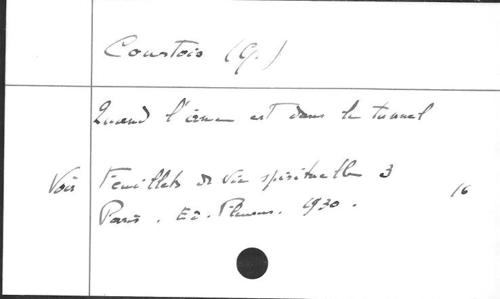 Courtois (G.)
Quand l'âme est dans le tunnel
Voir Feuillets de vie spirituelle 3
Paris. Ed. Fleurus. 1930. 16